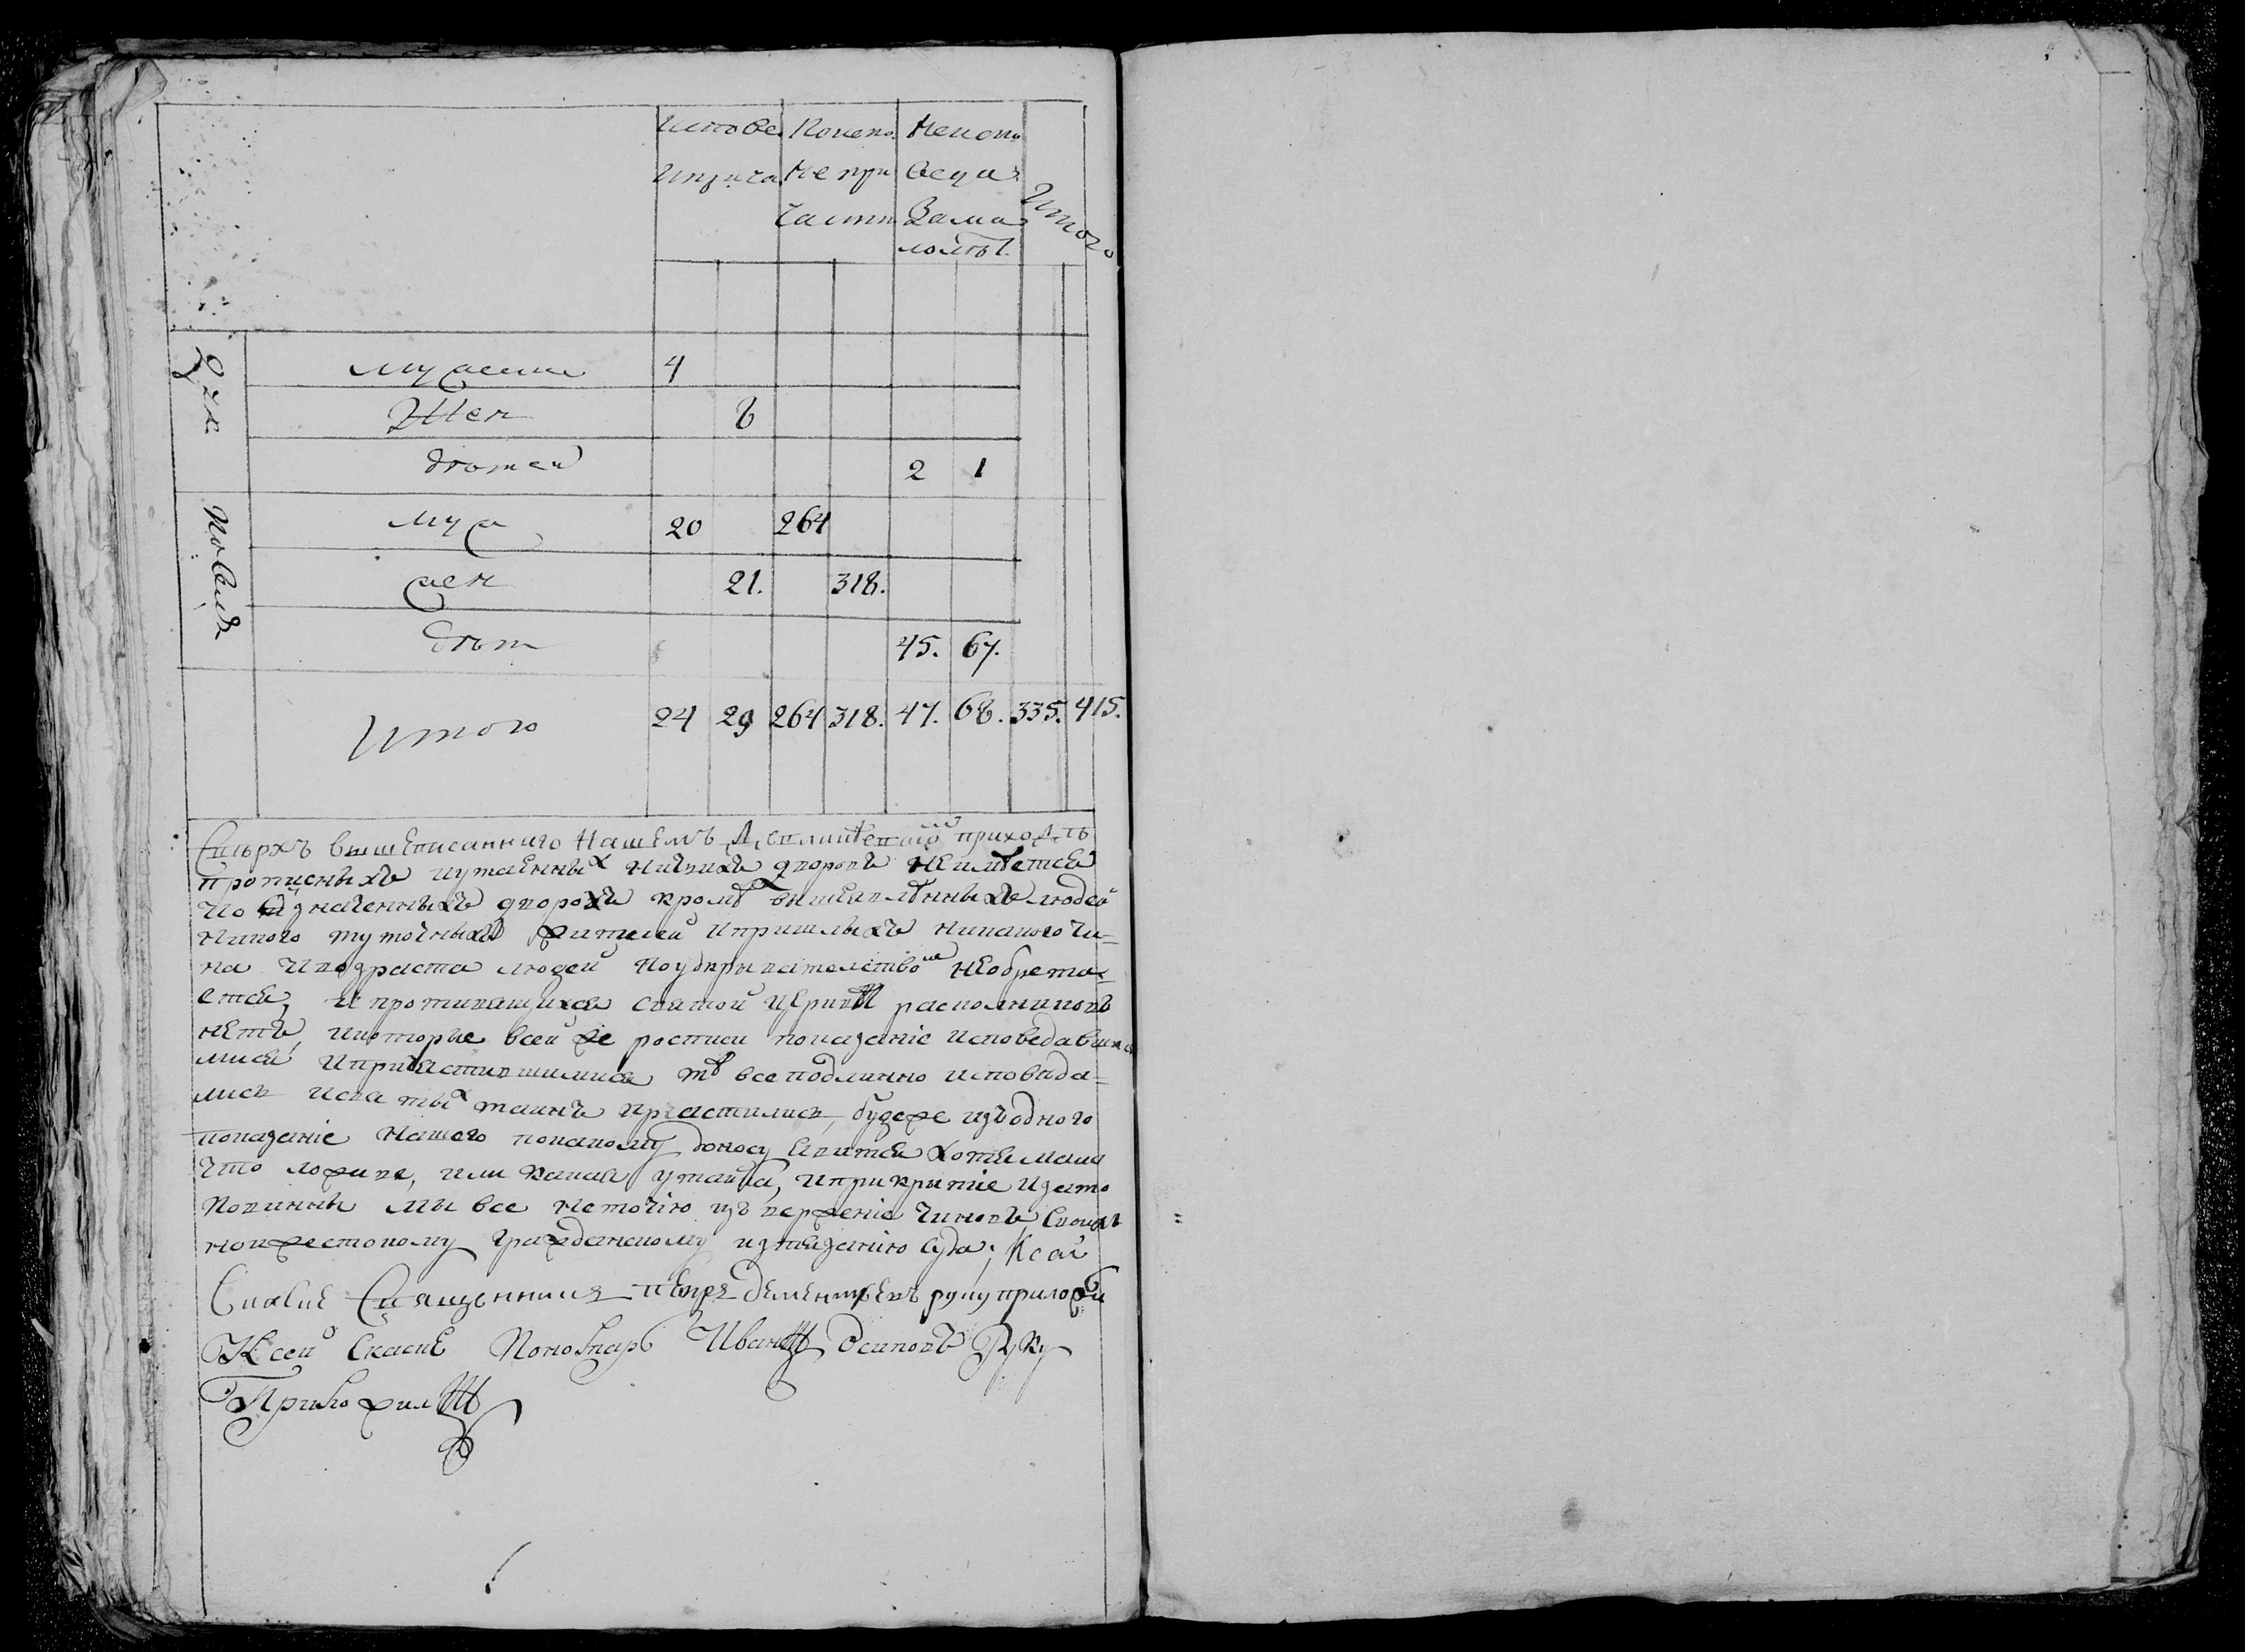 Испове Испове Неиспо
Иприча Непри веда
частн Зама
лолѣт.
Итого
Дух.
мужеска 4
Жен 8
дѣтей 2 1
Посел
муж 20 264
жен 21. 318.
дѣт 45. 67.
Итого 24 29 264 318. 47. 68. 335. 415.
Сверхъ вышеписанного Нашемъ приходѣ
прописныхъ иутаенныхъ никакихъ дворовъ неимѣется
Ивозначенныхъ дворохъ кромѣ вышеявленныхъ людей
никого тутошныхъ жителей ипришлыхъ никакого чи=
на ивозраста людей поукрывателству необрета=
ется, и противящихся святой церкви расколниковъ
нетъ, икоторые всей же росписи показание исповедавши
мися ипричастившимися тѣ все подлинно исповѣда=
лись исвятыхъ таинъ причастились, будеже изъодного
показание Нашего покакому доносу явится хотя мало
что лживе, или какая утайка, иприкрытие изато
повинны мы все неточию изъвержение чиновъ, своихъ
но ижестокому гражданскому изтязанию суда; Ксей
Скаске Священникъ петръ дементьевъ руку приложи
Ксей Скаске Пономарь Иванъ Осиповъ Руку
Приложилъ